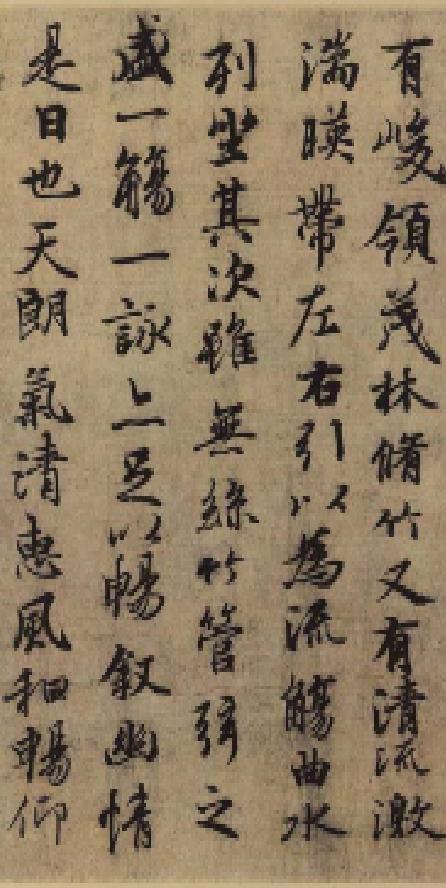 有峻領茂林脩竹又有清流激
湍暎帶左右引以為流觴曲水
列坐其次雖無絲竹管弦之
盛一觴一詠亦足以暢敘幽情
是日也天朗氣清惠風和暢仰